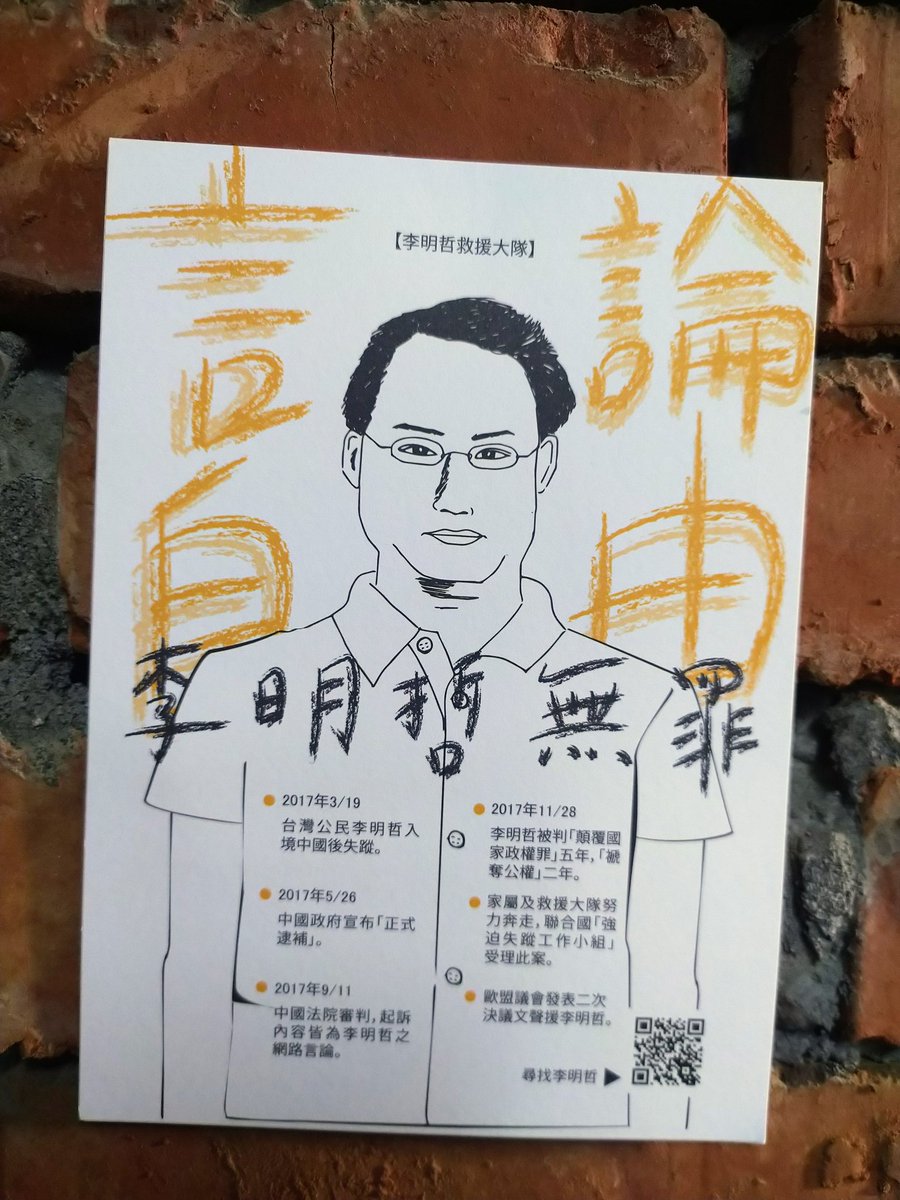 【李明哲救援大隊】
言論
自由
李明哲無罪
2017年3/19
台灣公民李明哲入
境中國後失蹤。
2017年5/26
中國政府宣布「正式
逮捕」。
2017年9/11
中國法院審判,起訴
內容皆為李明哲之
網路言論。
2017年11/28
李明哲被判「顛覆國
家政權罪」五年,「褫
奪公權」二年。
家屬及救援大隊努
力奔走,聯合國「強
迫失蹤工作小組」
受理此案。
歐盟議會發表二次
決議文聲援李明哲。
尋找李明哲